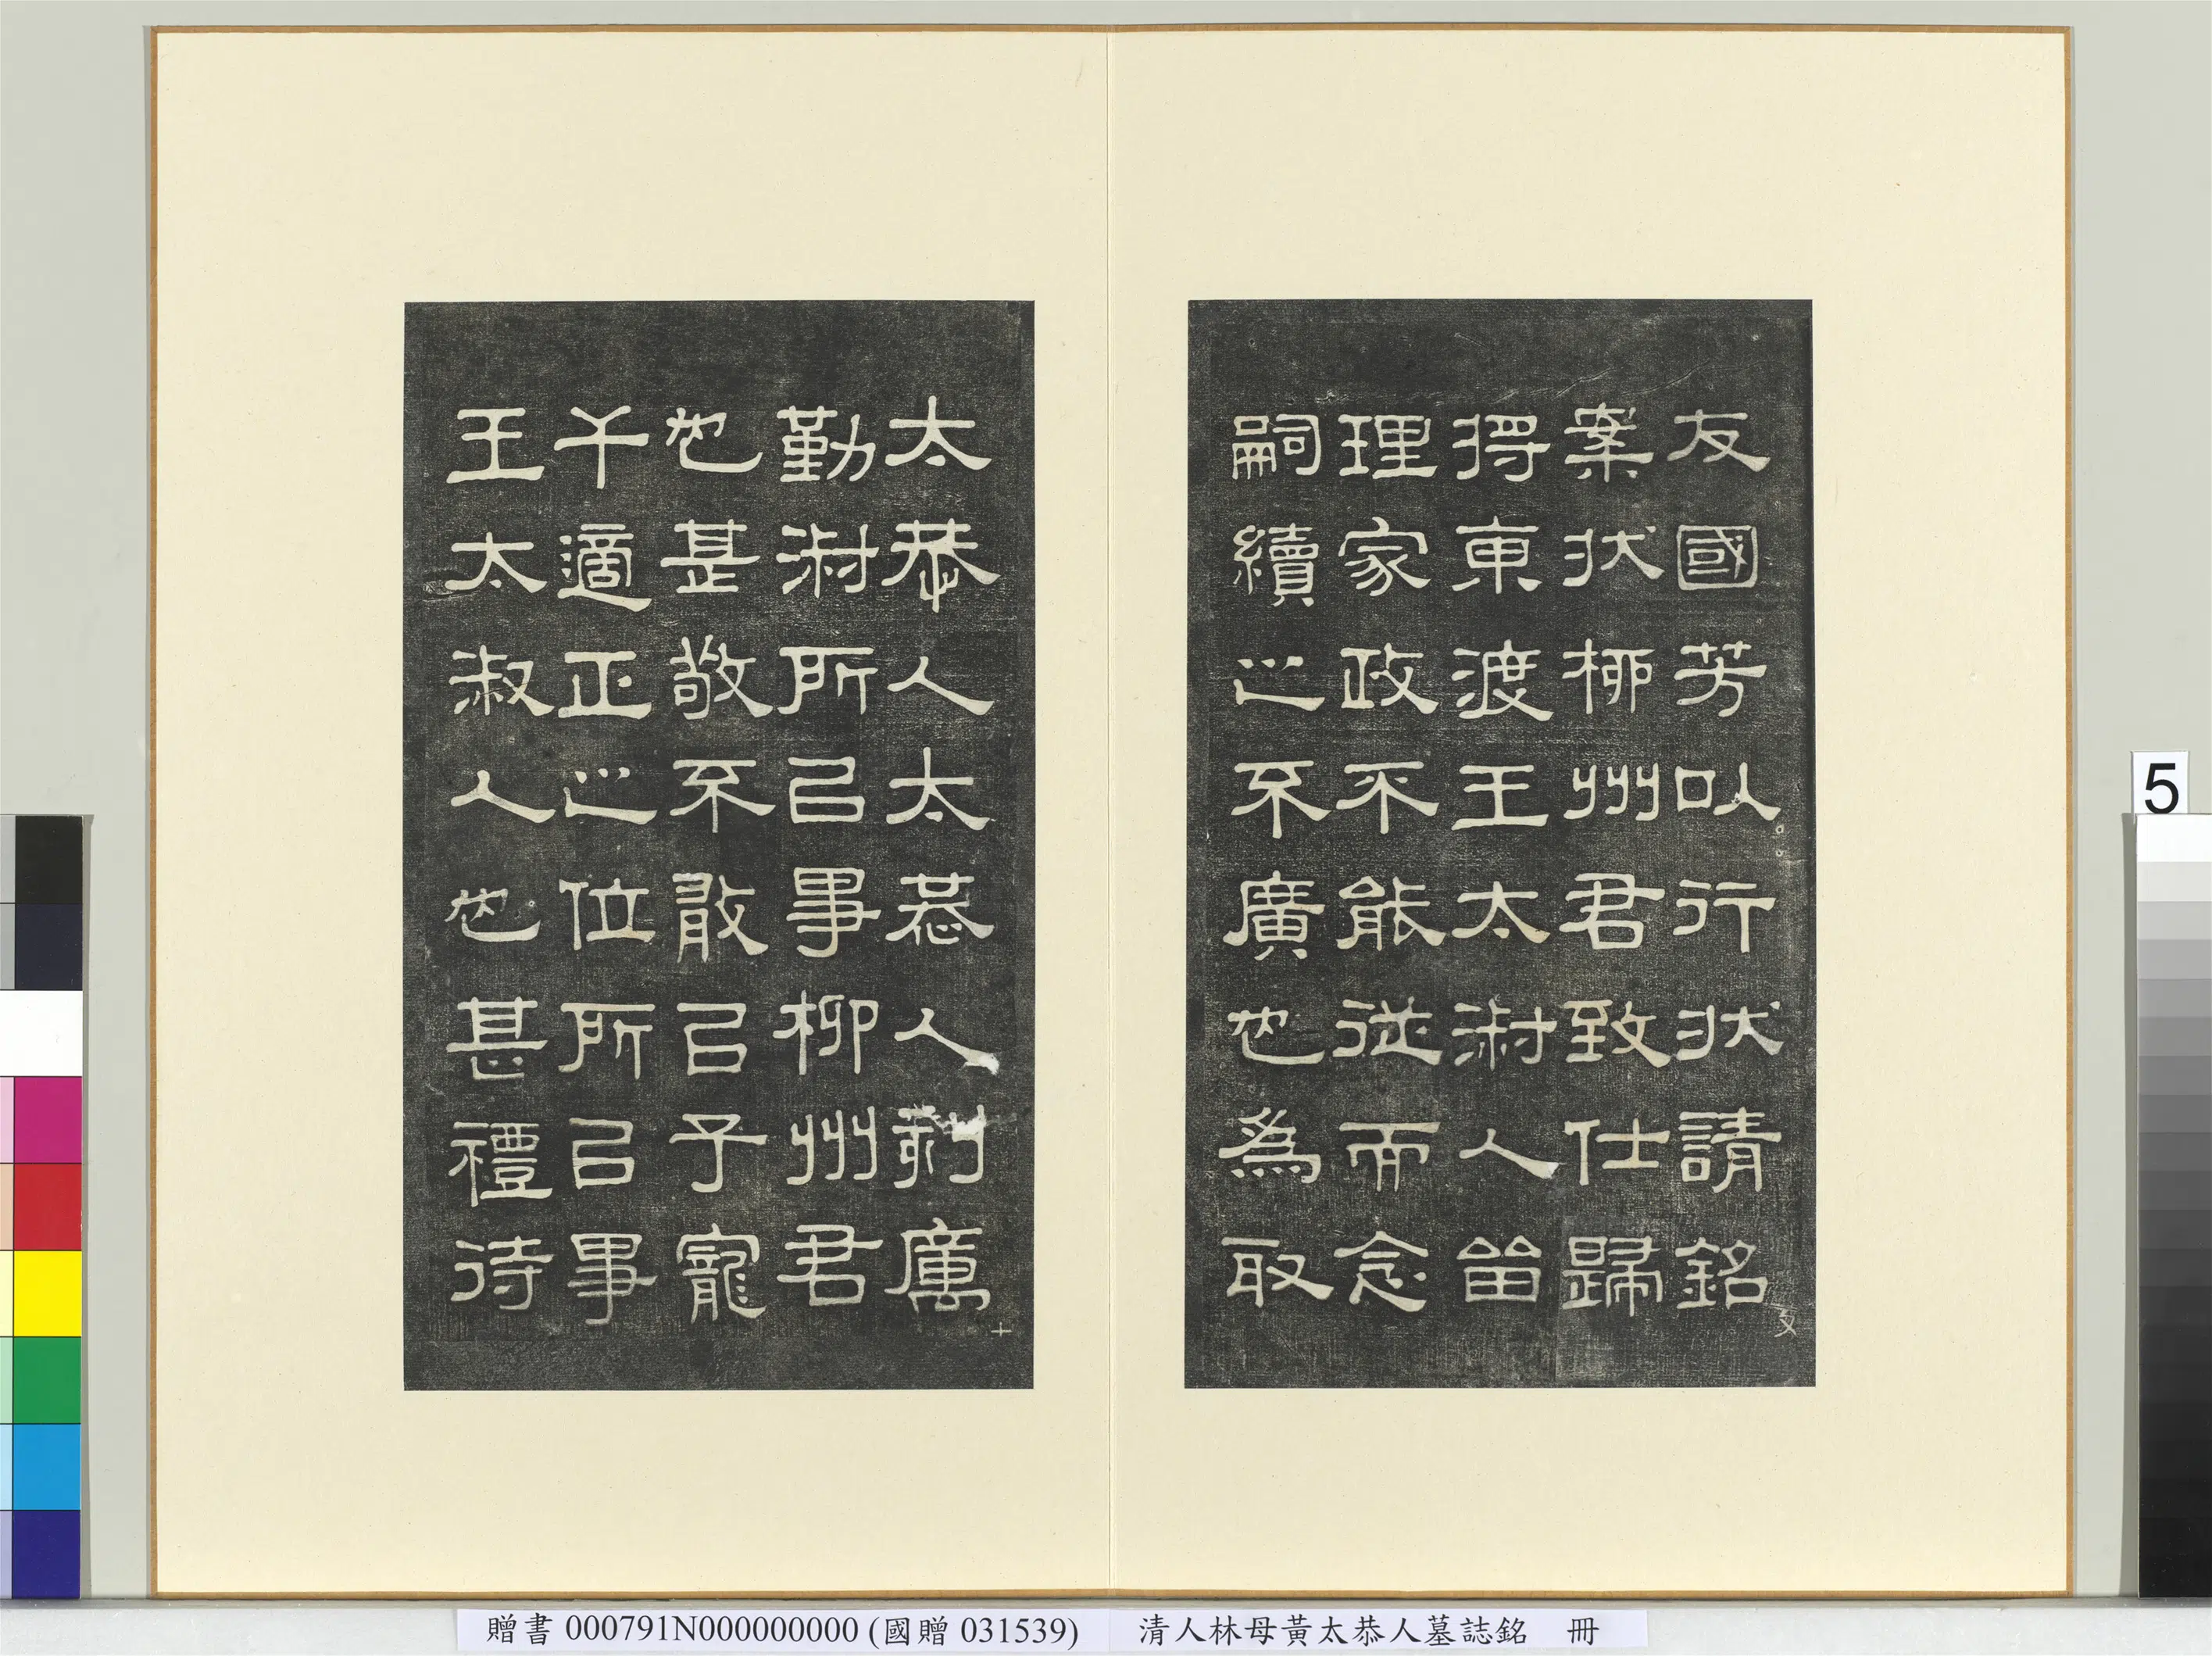 友國芳以行狀請銘
案狀栁州君致仕歸
得東渡王太淑人留
理家政不能從而念
嗣續之不廣也為取
太恭人太恭人刻厲
勤淑所㠯事柳州君
也甚敬不敢㠯子寵
干適正之位所㠯事
王太淑人也甚禮待
5
贈書 000791N000000000 (國贈 031539)
清人林母黃太恭人墓誌銘 冊